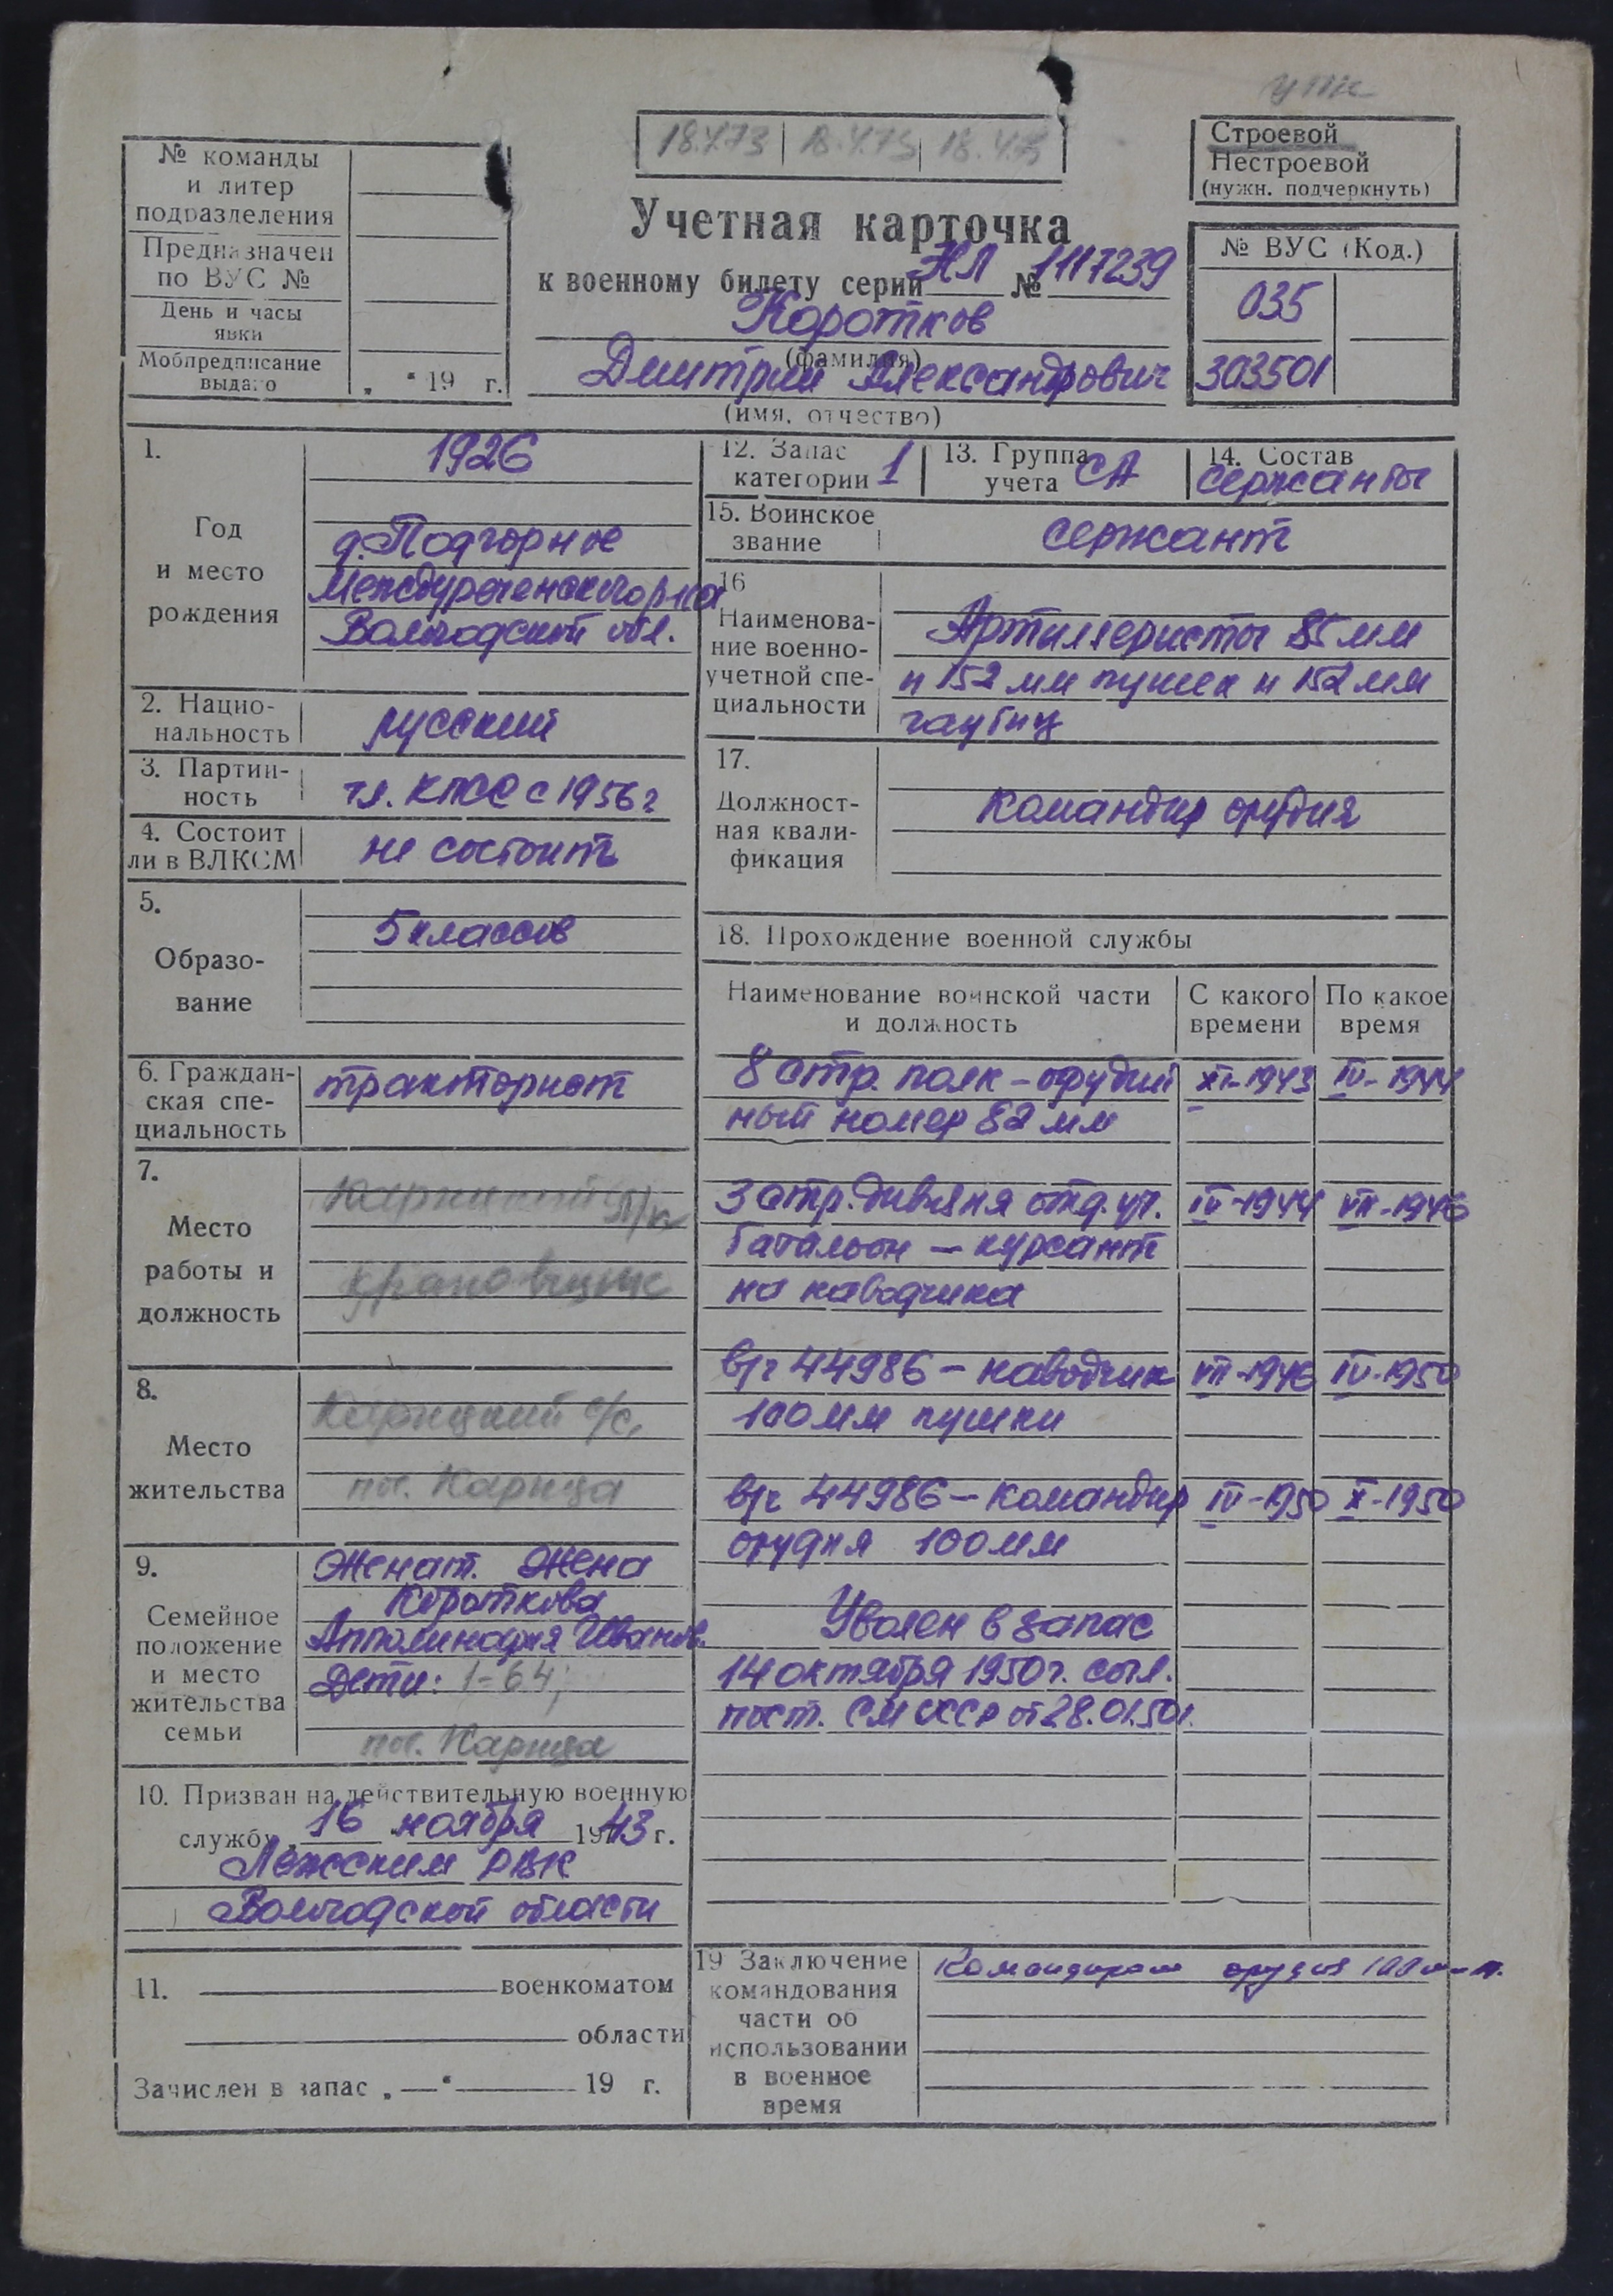 № команды
и литер
подразделения
Предназначен
по ВУС №
День и часы
явки
Мобпредписание
выдано
„ " 19 г.
18.4.73 18.4.75
Учетная карточка
к военному билету серии НЛ № 1117239
Коротков
(фамилия)
Дмитрий Александрович
(имя, отчество)
Строевой
Нестроевой
(нужн. подчеркнуть)
№ ВУС (Код.)
035
303501
1.
Год
и место
рождения
1926
д. Подгорное
Междуреченского р-на
Вологодской обл.
2. Нацио-
нальность
русский
3. Партий-
ность
чл. КПСС с 1956 г
4. Состоит
ли в ВЛКСМ
не состоит
5.
Образо-
вание
5 классов
6. Граждан-
ская спе-
циальность
тракторист
7.
Место
работы и
должность
крановщик
8.
Место
жительства
Карицкий с/с,
пос. Карица
9.
Семейное
положение
и место
жительства
семьи
Женат. Жена
Короткова
Апполинария Иванов.
Дети: 1-64;
пос. Карица
10. Призван на действительную военную
службу „ 16 " ноября 1943 г.
Лежским РВК
Вологодской области
11. военкоматом
области
Зачислен в запас „ — " 19 г.
12. Запас
категории 1
13. Группа
учета СА
14. Состав
сержанты
15. Воинское
звание
сержант
16
Наименова-
ние военно-
учетной спе-
циальности
Артиллеристы 85 мм
и 152 мм пушек и 152 мм
гаубиц
17.
Должност-
ная квали-
фикация
Командир орудия
18. Прохождение военной службы
Наименование воинской части
и должность
С какого
времени
По какое
время
8 стр. полк – орудий XI-1943 IV-1944
ный номер 82 мм
3 стр. дивизия отд. уч. IV-1944 VII-1946
батальон – курсант
на наводчика
в/ч 44986 – наводчик VII-1946 IV-1950
100 мм пушки
в/ч 44986 – командир IV-1950 X-1950
орудия 100 мм
Уволен в запас
14 октября 1950 г. согл.
пост. СМ СССР от 28.01.50 г.
19 Заключение
командования
части об
использовании
в военное
время
Командиром орудия 100 мм п.